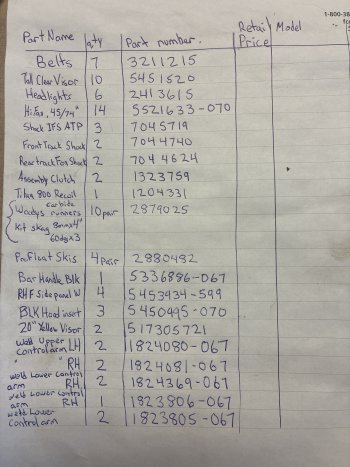 1-800-38
Part Name qty Part number. Retail Price Model
Belts 7 3211215
Tall Clear Visor 10 5451520
Headlights 6 2413615
Hifax, 45/74" 14 5521633-070
Shock IFS ATP 3 7045719
Front Track Shock 2 7044740
Rear track Fox Shock 2 7044624
Assembly Clutch 2 1323759
800 Recoil 1 1204331
carbide
Woodys runners 10 pair 2879025
Kit skag 8mmx4"
60dgx3
Pro Float Skis 4 pair 2880482
Bar Handle Blk 1 5336886-067
RHF Side panel W 4 5453934-599
BLK Hood inset 3 5450495-070
20" Yellow Visor 2 517305721
Weld Upper
control arm LH 2 1824080-067
" " RH 2 1824081-067
weld Lower control
arm RH 2 1824369-067
weld Lower control
arm RH 1 1823806-067
weld Lower
Control arm 2 1823805-067